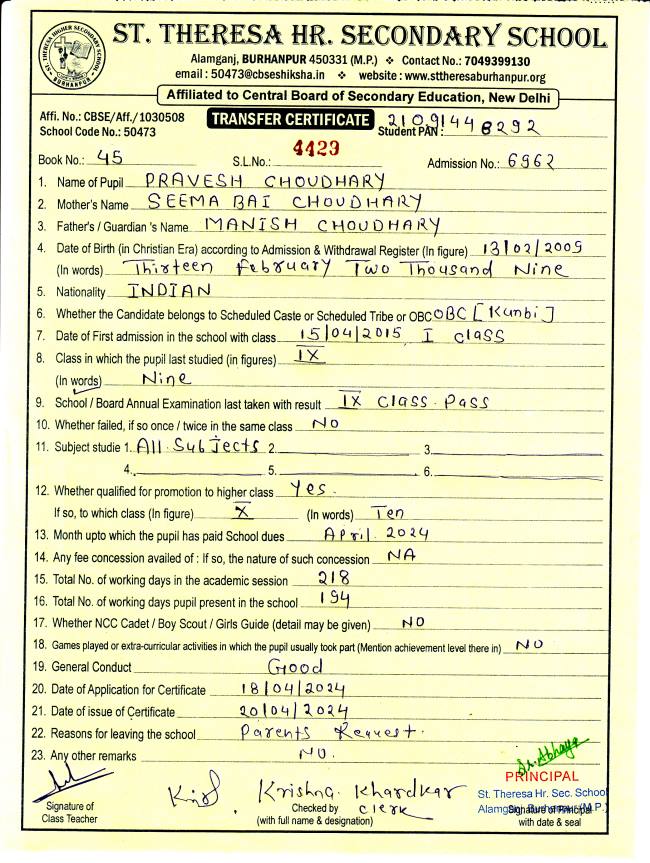 ST. THERESA HIGHER SECONDARY SCHOOL BURHANPUR
ST. THERESA HR. SECONDARY SCHOOL
Alamganj, BURHANPUR 450331 (M.P.) ❖ Contact No.: 7049399130
email : 50473@cbseshiksha.in ❖ website : www.sttheresaburhanpur.org
Affiliated to Central Board of Secondary Education, New Delhi
Affi. No.: CBSE/Aff./1030508 TRANSFER CERTIFICATE Student PAN: 21091448292
School Code No.: 50473
Book No.: 45 S.L.No.: 4423 Admission No.: 6962
1. Name of Pupil PRAVESH CHOUDHARY
2. Mother's Name SEEMA BAI CHOUDHARY
3. Father's / Guardian 's Name MANISH CHOUDHARY
4. Date of Birth (in Christian Era) according to Admission & Withdrawal Register (In figure) 13/02/2009
(In words) Thirteen February Two Thousand Nine
5. Nationality INDIAN
6. Whether the Candidate belongs to Scheduled Caste or Scheduled Tribe or OBC OBC [Kunbi]
7. Date of First admission in the school with class 15/04/2015 I class
8. Class in which the pupil last studied (in figures) IX
(In words) Nine
9. School / Board Annual Examination last taken with result IX Class Pass
10. Whether failed, if so once / twice in the same class NO
11. Subject studie 1. All Subjects 2. 3.
4. 5. 6.
12. Whether qualified for promotion to higher class Yes.
If so, to which class (In figure) X (In words) Ten
13. Month upto which the pupil has paid School dues April. 2024
14. Any fee concession availed of : If so, the nature of such concession NA
15. Total No. of working days in the academic session 218
16. Total No. of working days pupil present in the school 194
17. Whether NCC Cadet / Boy Scout / Girls Guide (detail may be given) NO
18. Games played or extra-curricular activities in which the pupil usually took part (Mention achievement level there in) NO
19. General Conduct Good
20. Date of Application for Certificate 18/04/2024
21. Date of issue of Certificate 20/04/2024
22. Reasons for leaving the school Parents Request.
23. Any other remarks NO.
Sr. Abhaya
PRINCIPAL
Krishna Khardkar St. Theresa Hr. Sec. School
Signature of Checked by Clerk Alamganj, Burhanpur (M.P.) Signature of Principal
Class Teacher (with full name & designation) with date & seal